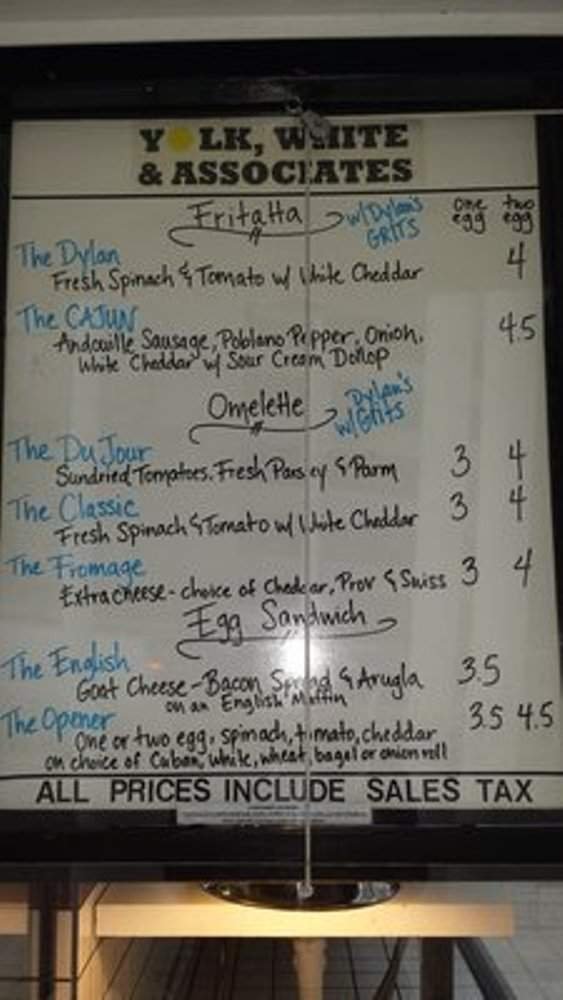 YOLK, WHITE
& ASSOCIATES
Fritatta w/Dylan's GRITS one egg two egg
The Dylan 4
Fresh Spinach & Tomato w/ White Cheddar
The CAJUN 4.5
Andouille Sausage, Poblano Pepper, Onion,
White Cheddar w/ Sour Cream Dollop
Omelette Dylan's w/Grits
The Du Jour 3 4
Sundried Tomatoes, Fresh Parsley & Parm
The Classic 3 4
Fresh Spinach & Tomato w/ White Cheddar
The Fromage 3 4
Extra cheese - choice of Cheddar, Prov & Swiss
Egg Sandwich
The English 3.5
Goat Cheese - Bacon Spread & Arugla
on an English Muffin
The Opener 3.5 4.5
One or two egg, spinach, tomato, cheddar
on choice of Cuban, white, wheat, bagel or onion roll
ALL PRICES INCLUDE SALES TAX